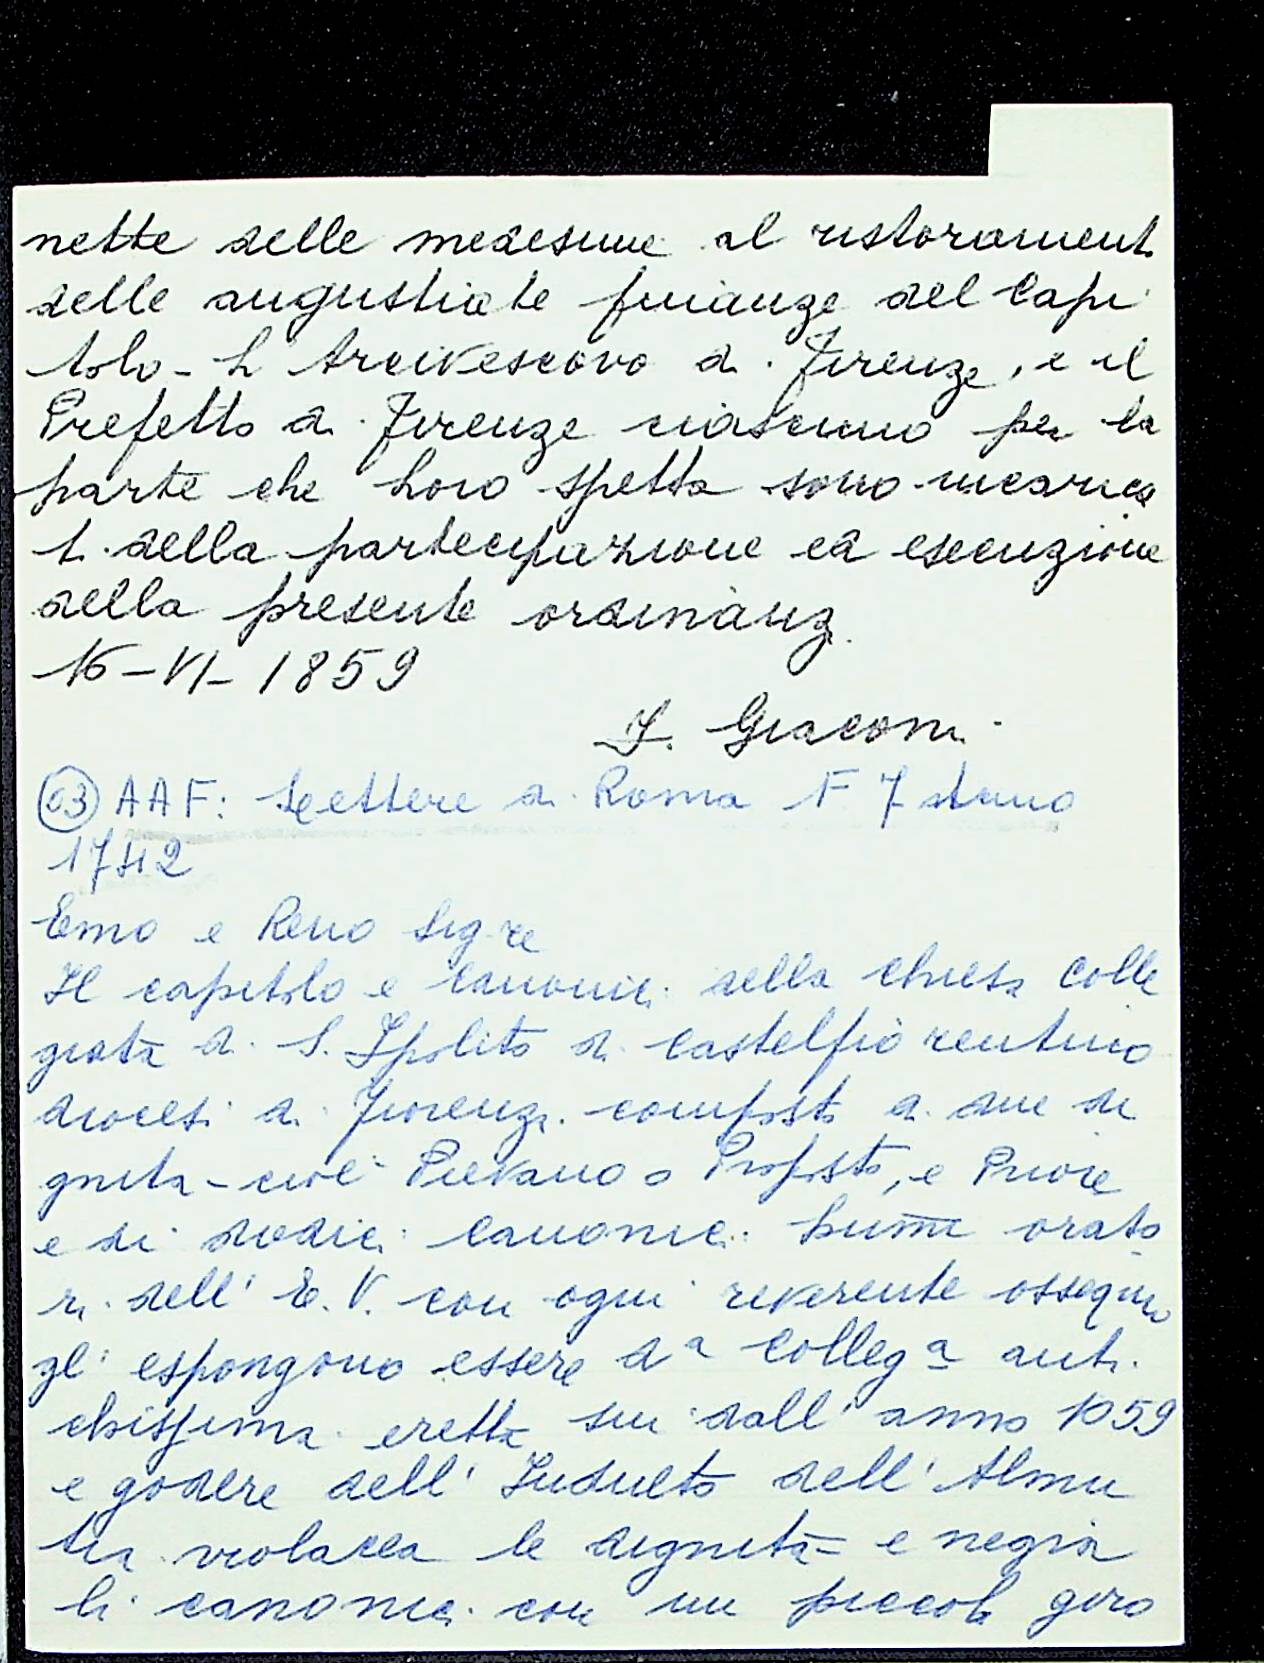 nette delle medesime al ristorament.
delle augustiate finanze del Capi
tolo - L'Arcivescovo di Firenze, e il
Prefetto di Firenze ciascuno per la
parte che Loro spetta sono incarica
ti della partecipazione ed esecuzione
della presente ordinanz.
16-VI-1859
F. Giacomi
63 AAF: Lettere di Roma F 7 Anno
1742
Emo e Remo Sig.re
Il capitolo e Canonici della chiesa Colle
giata di S. Ipolito di Castelfiorentino
diocesi di Fiorenza composto di due di
gnità - cioè Pievano o Proposto, e Priore
e di dodici Canonici humi orato
ri dell' E. V. con ogni reverente ossequio
gli espongono essere da Collega anti
chissima eretta sin dall' anno 1059
e godere dell' Indulto dell' Almu
tia violacea le dignità e negra
li canonici con un piccolo giro